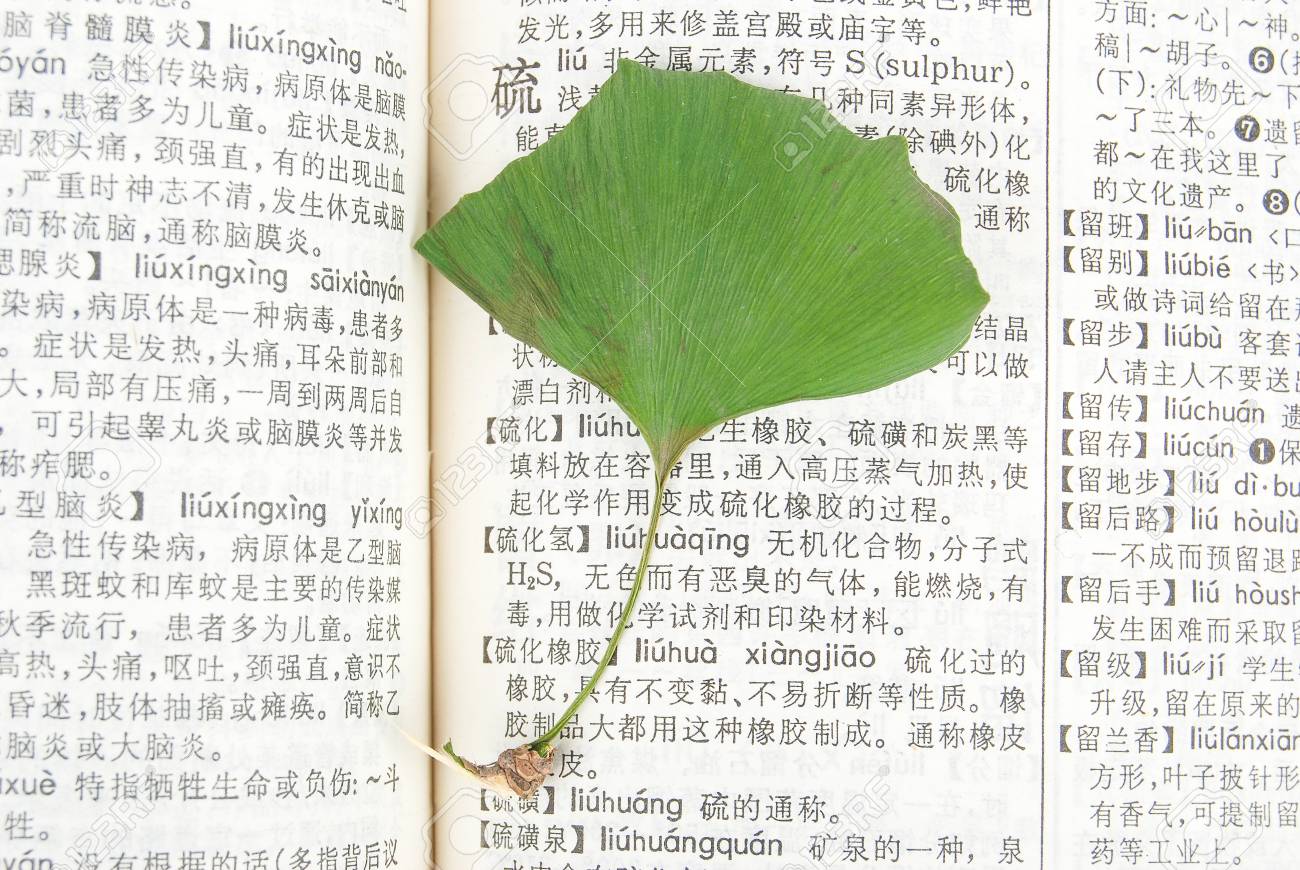 脑脊髓膜炎】liúxíngxìng nǎo-
óyán 急性传染病，病原体是脑膜
菌，患者多为儿童。症状是发热，
剧烈头痛，颈强直，有的出现出血
，严重时神志不清，发生休克或脑
简称流脑，通称脑膜炎。
腮腺炎】 liúxíngxìng sāixiànyán
染病，病原体是一种病毒，患者多
。症状是发热，头痛，耳朵前部和
大，局部有压痛，一周到两周后自
，可引起睾丸炎或脑膜炎等并发
称痄腮。
乙型脑炎】 liúxíngxìng yǐxíng
急性传染病，病原体是乙型脑
黑斑蚊和库蚊是主要的传染媒
秋季流行，患者多为儿童。症状
高热，头痛，呕吐，颈强直，意识不
昏迷，肢体抽搐或瘫痪。简称乙
脑炎或大脑炎。
uè 特指牺牲生命或负伤：～斗
牲。
yán 没有根据的话（多指背后议
发光，多用来修盖宫殿或庙宇等。
硫 liú 非金属元素，符号S(sulphur)。
浅 有几种同素异形体，
能 素（除碘外）化
硫化橡
通称
结晶
状 可以做
漂白剂和
【硫化】liúhu 生橡胶、硫磺和炭黑等
填料放在容器里，通入高压蒸气加热，使
起化学作用变成硫化橡胶的过程。
【硫化氢】liúhuàqīng 无机化合物，分子式
H₂S，无色而有恶臭的气体，能燃烧，有
毒，用做化学试剂和印染材料。
【硫化橡胶】liúhuà xiàngjiāo 硫化过的
橡胶，具有不变黏、不易折断等性质。橡
胶制品大都用这种橡胶制成。通称橡皮
皮。
【硫磺】liúhuáng 硫的通称。
【硫磺泉】liúhuángquán 矿泉的一种，泉
方面：～心｜～神。
稿｜～胡子。❻
(下)：礼物先～下
～了三本。❼遗留
都～在我这里了
的文化遗产。❽
【留班】liú∥bān <口
【留别】liúbié <书>
或做诗词给留在
【留步】liúbù 客套
人请主人不要送出
【留传】liúchuán 遗
【留存】liúcún ❶保
【留地步】liú dì·bu
【留后路】liú hòulù
一不成而预留退路
【留后手】liú hòush
发生困难而采取留
【留级】liú∥jí 学生
升级，留在原来的
【留兰香】liúlánxiān
方形，叶子披针形
有香气，可提制留
药等工业上。
123RF